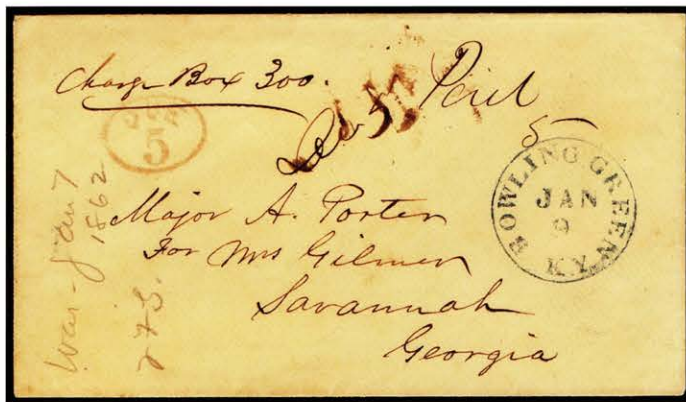 Charge Box 300.
Paid
5
5
BOWLING GREEN
JAN
9
KY.
Major A. Porter
For Mrs Gilmer
Savannah
Georgia
War - Jan 7
1862